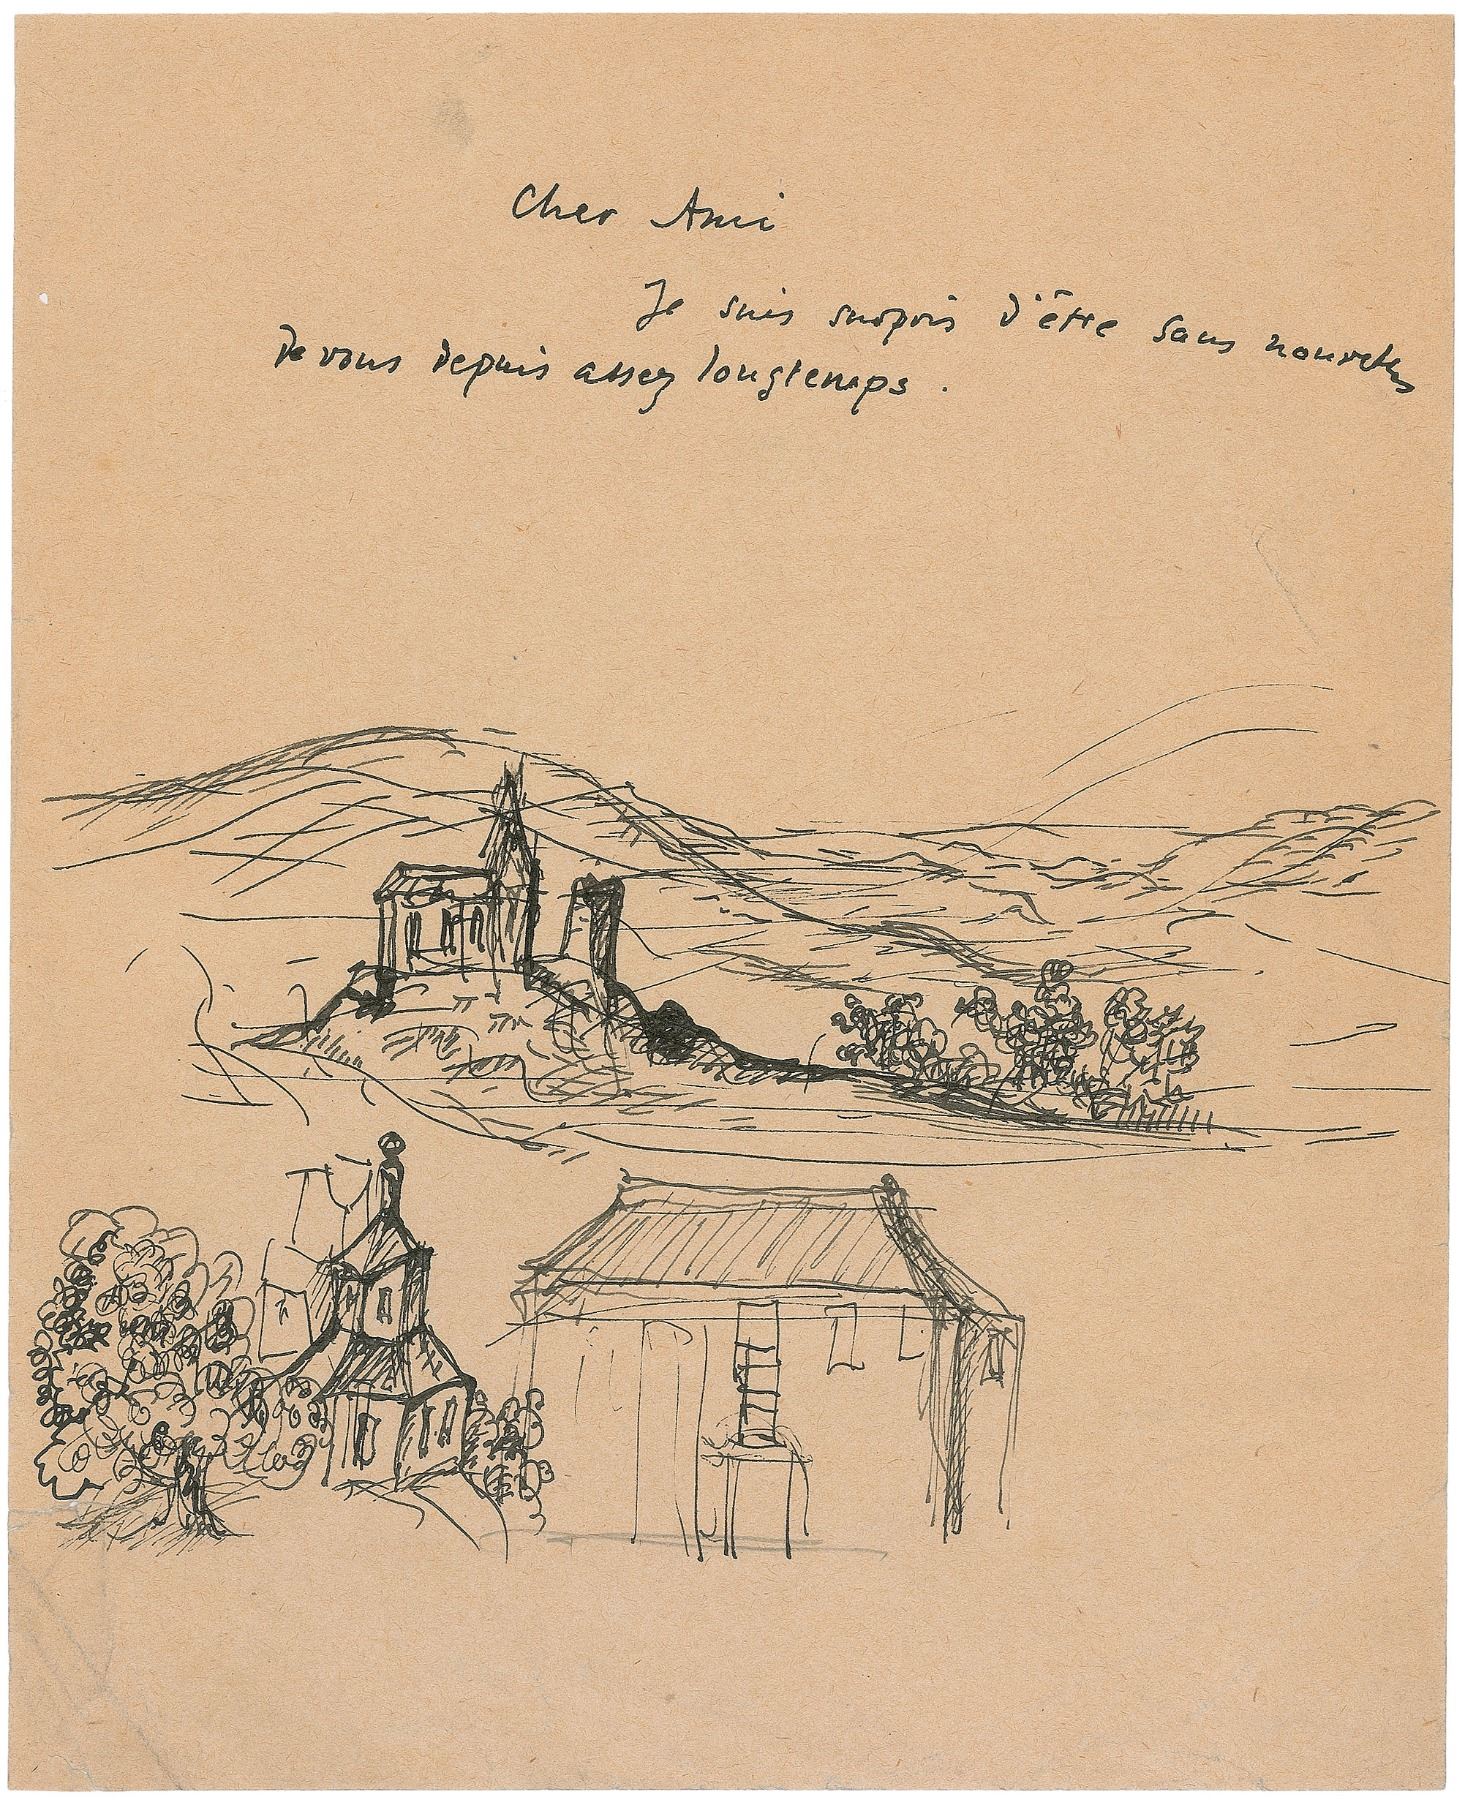 Cher Ami
Je suis surpris d'être sans nouvelles
de vous depuis assez longtemps.